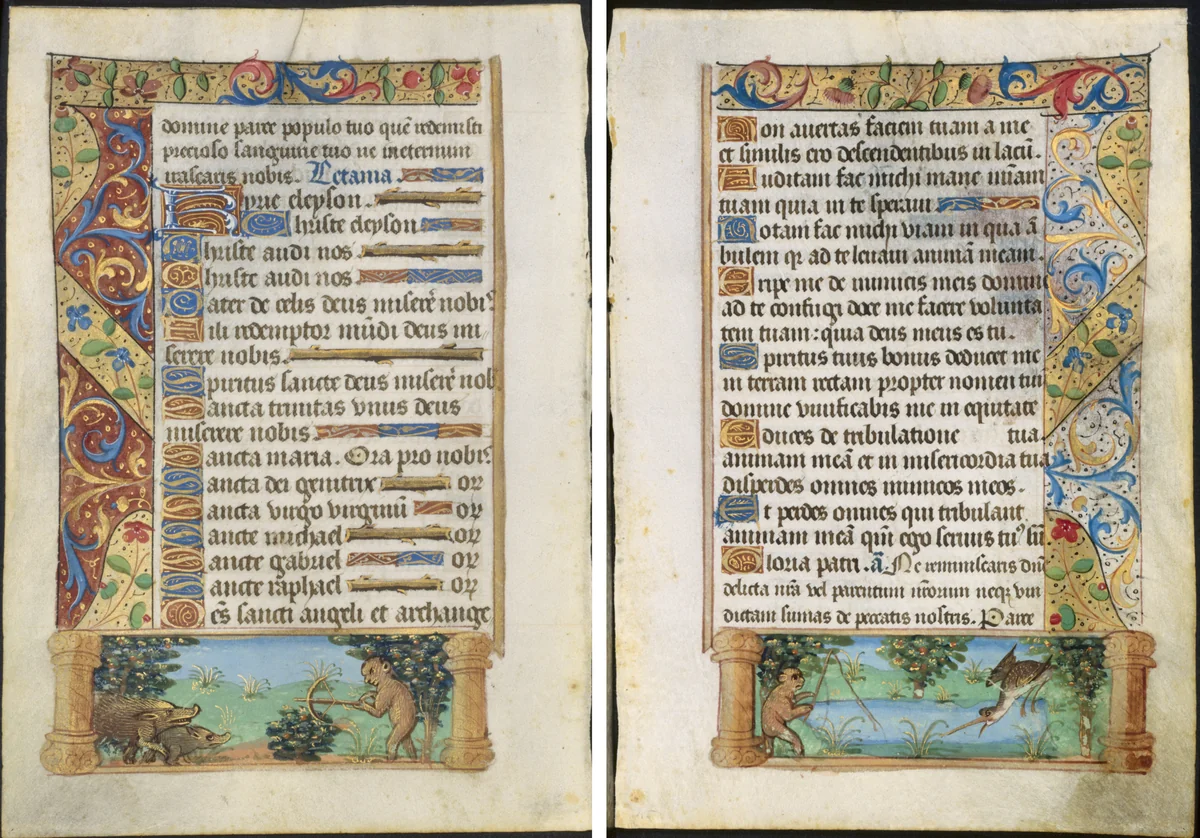 domine parce populo tuo quē redemisti
precioso sanguine tuo ne ineternum
irascaris nobis. Letania
Kyrie eleyson.
Christe eleyson
Christe audi nos
Christe audi nos
Pater de celis deus miserē nobiꝰ
Fili redemptor mūdi deus mi
serere nobis.
Spiritus sancte deus miserē nob
Sancta trinitas unus deus
miserere nobis
Sancta maria. Ora pro nobiꝰ
Sancta dei genitrix or
Sancta virgo virginū or
Sancte michael or
Sancte gabriel or
Sancte raphael or
Oēs sancti angeli et archange
Non avertas faciem tuam a me
et similis ero descendentibus in lacū.
Auditam fac michi mane miām
tuam quia in te speravi
Notam fac michi viam in qua ā
bulem qr ad te levavi animā meam.
Eripe me de inimicis meis domine
ad te confugi doce me facere volunta
tem tuam: quia deus meus es tu.
Spiritus tuus bonus deducet me
in terram rectam propter nomen tuū
domine vivificabis me in equitate
Educes de tribulatione tua
animam meā et in misericordia tua
disperdes omnes inimicos meos.
Et perdes omnes qui tribulant
animam meā qm̄ ego servus tuꝰ sū
Gloria patri. ā. Ne reminiscaris dn̄e
delicta nr̄a vel parentum nr̄orum neqꝫ vin
dictam sumas de peccatis nostris. Parce